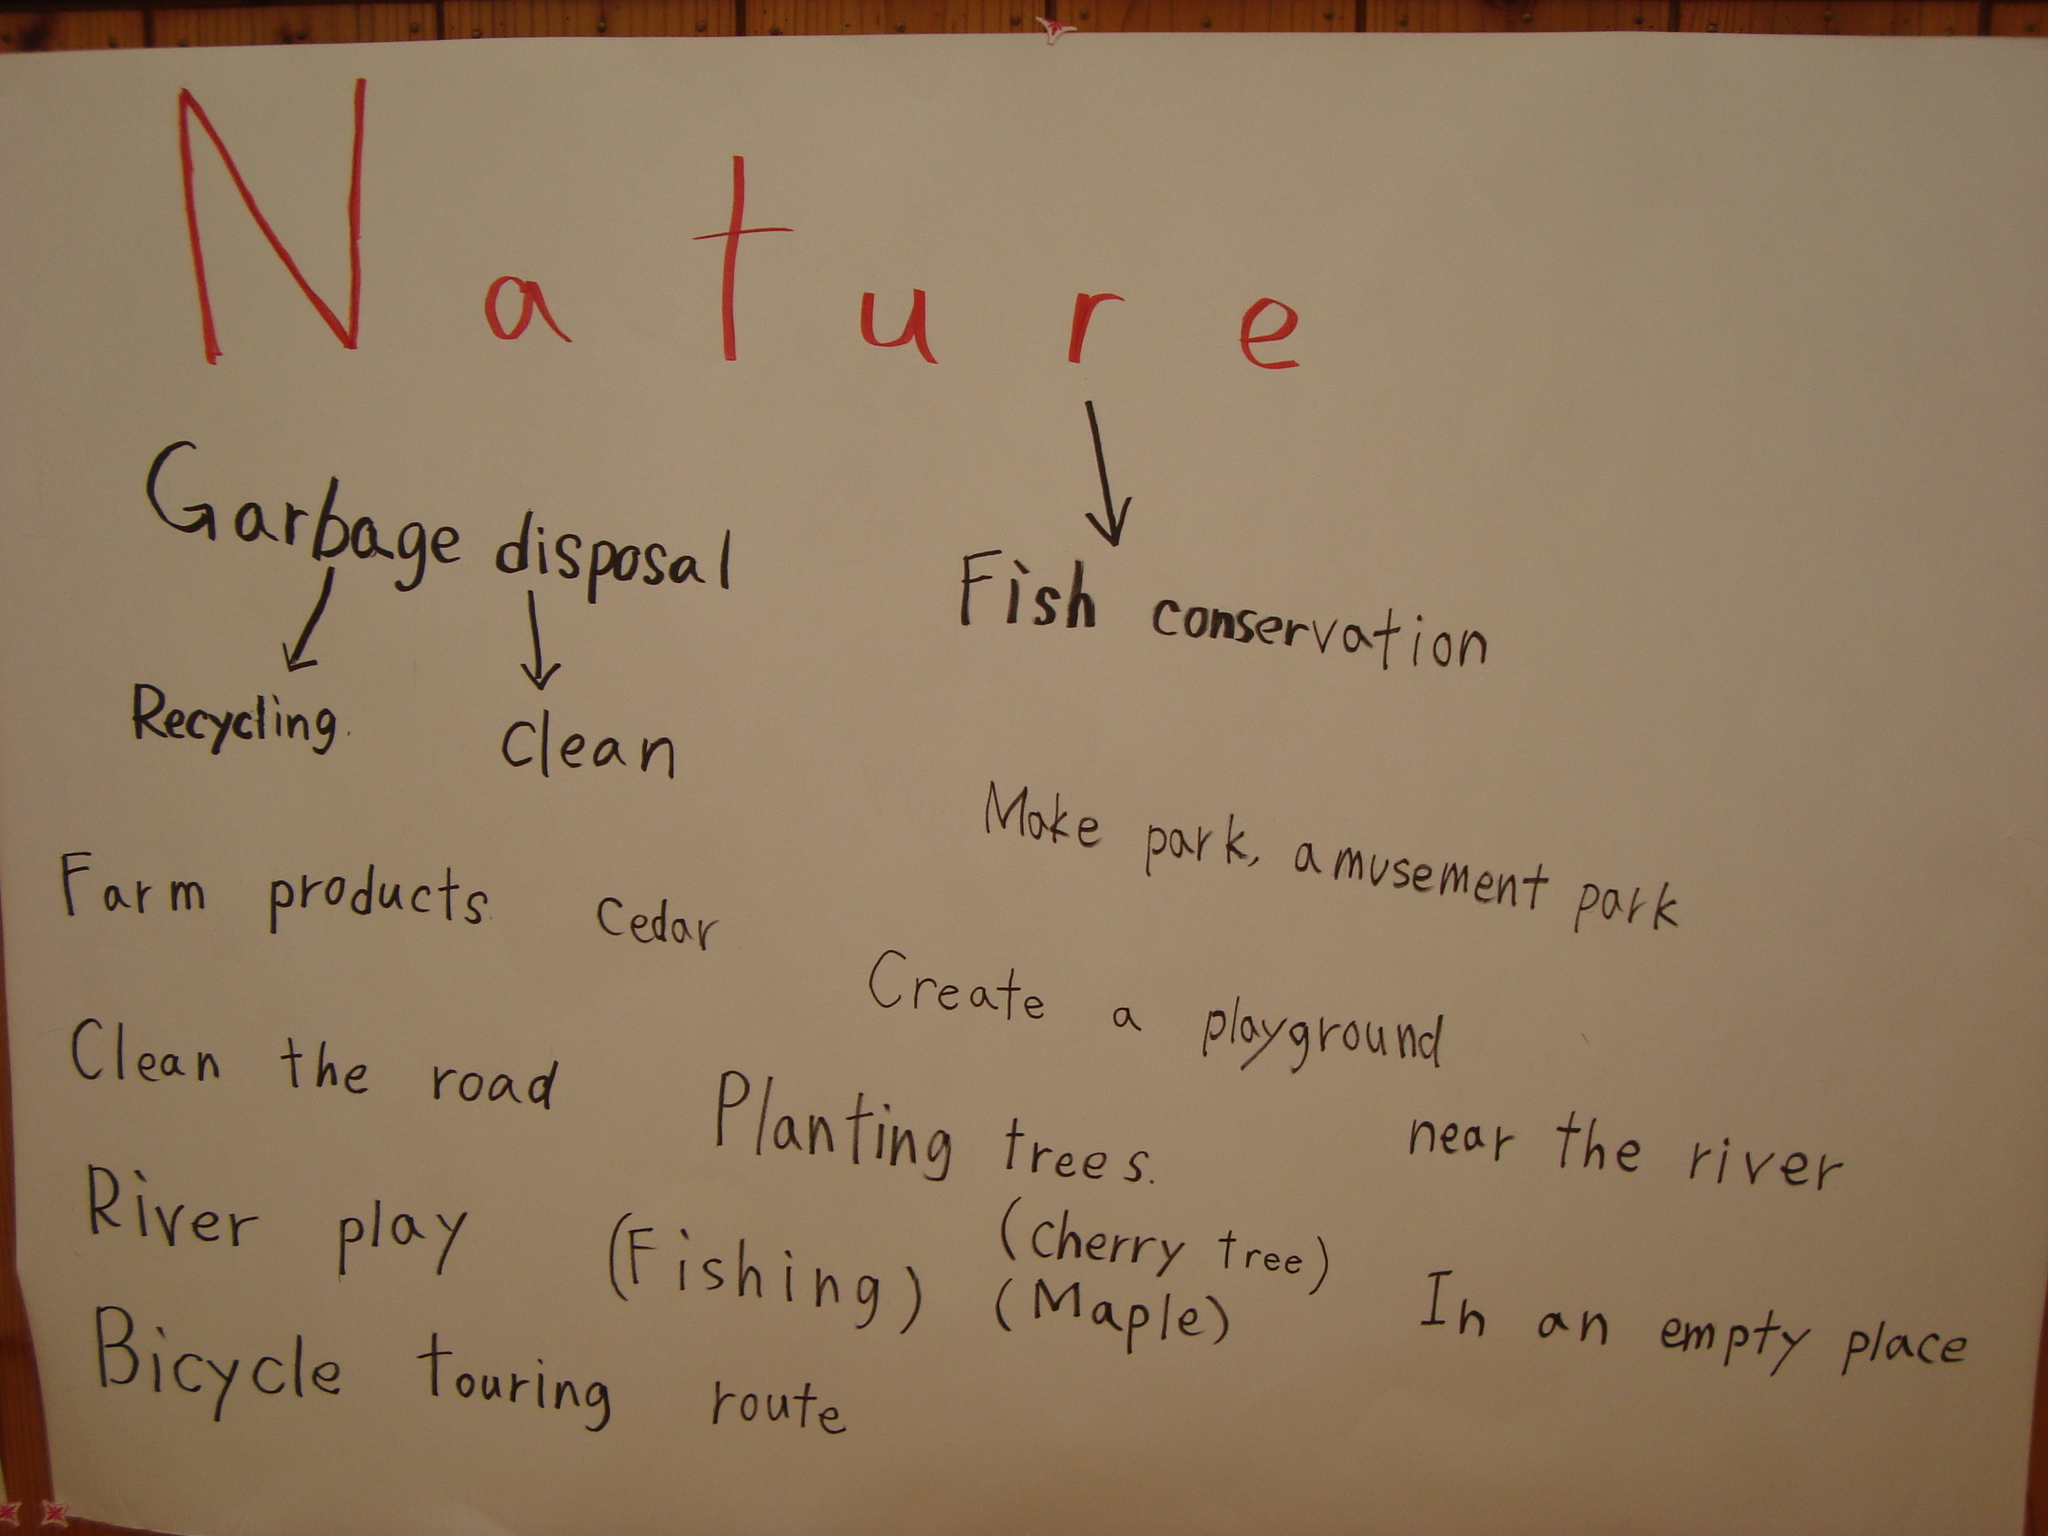 Nature
Garbage disposal
Fish conservation
Recycling.
Clean
Make park, amusement park
Farm products.
Cedar
Create a playground
Clean the road
Planting trees.
near the river
River play (Fishing)
(Cherry tree)
(Maple)
In an empty place
Bicycle touring route